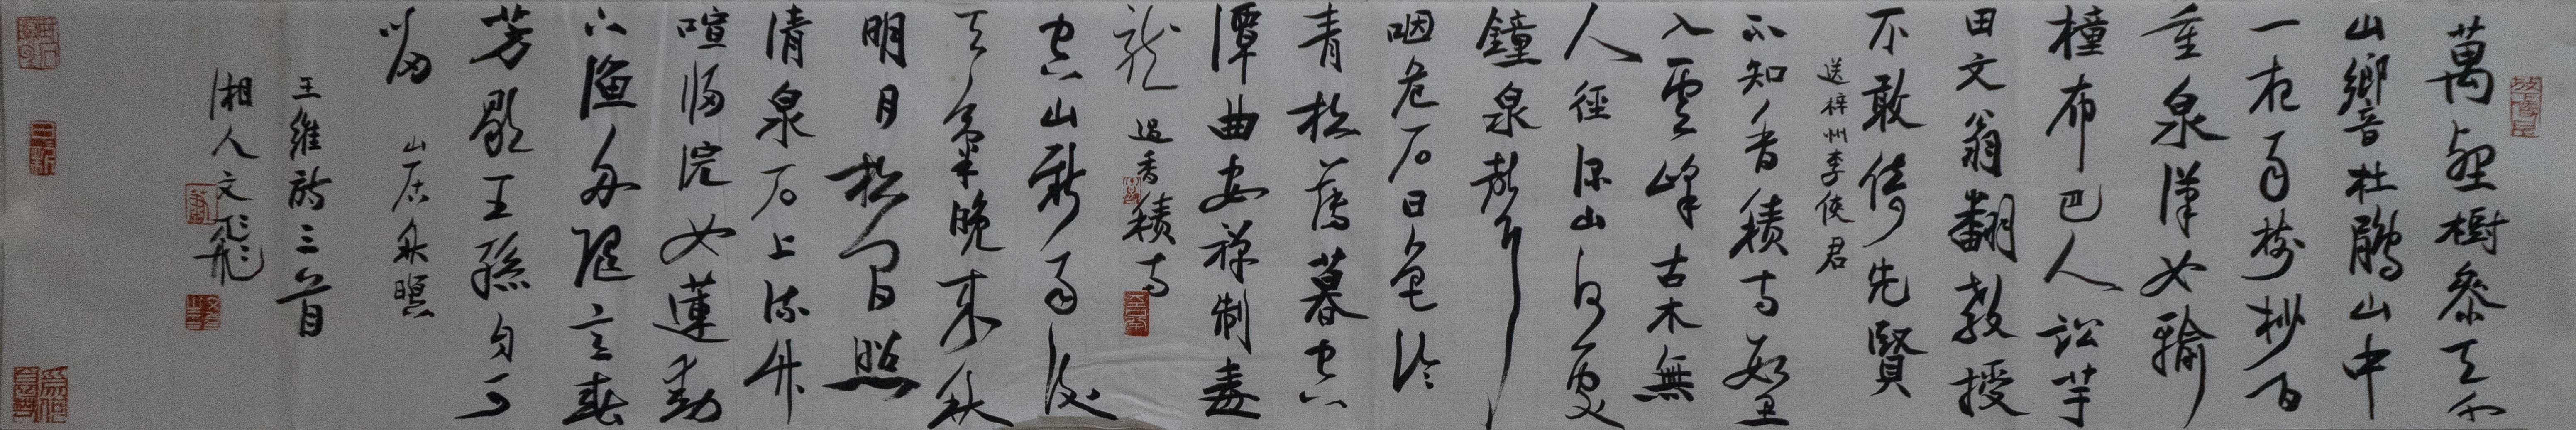 萬壑樹參天千
山鄉音杜鵑山中
一夜雨樹杪百
重泉漢女輸
橦布巴人訟芋
田文翁翻教授
不敢倚先賢
送梓州李使君
不知香積寺數里
入雲峰古木無
人徑深山何處
鐘泉聲
咽危石日色冷
青松薄暮空
潭曲安禪制毒
龍 過香積寺
空山新雨後
天氣晚來秋
明月松間照
清泉石上流竹
喧歸浣女蓮動
下漁舟隨意春
芳歇王孫自可
留 山居秋暝
王維詩三首
湘人文飛